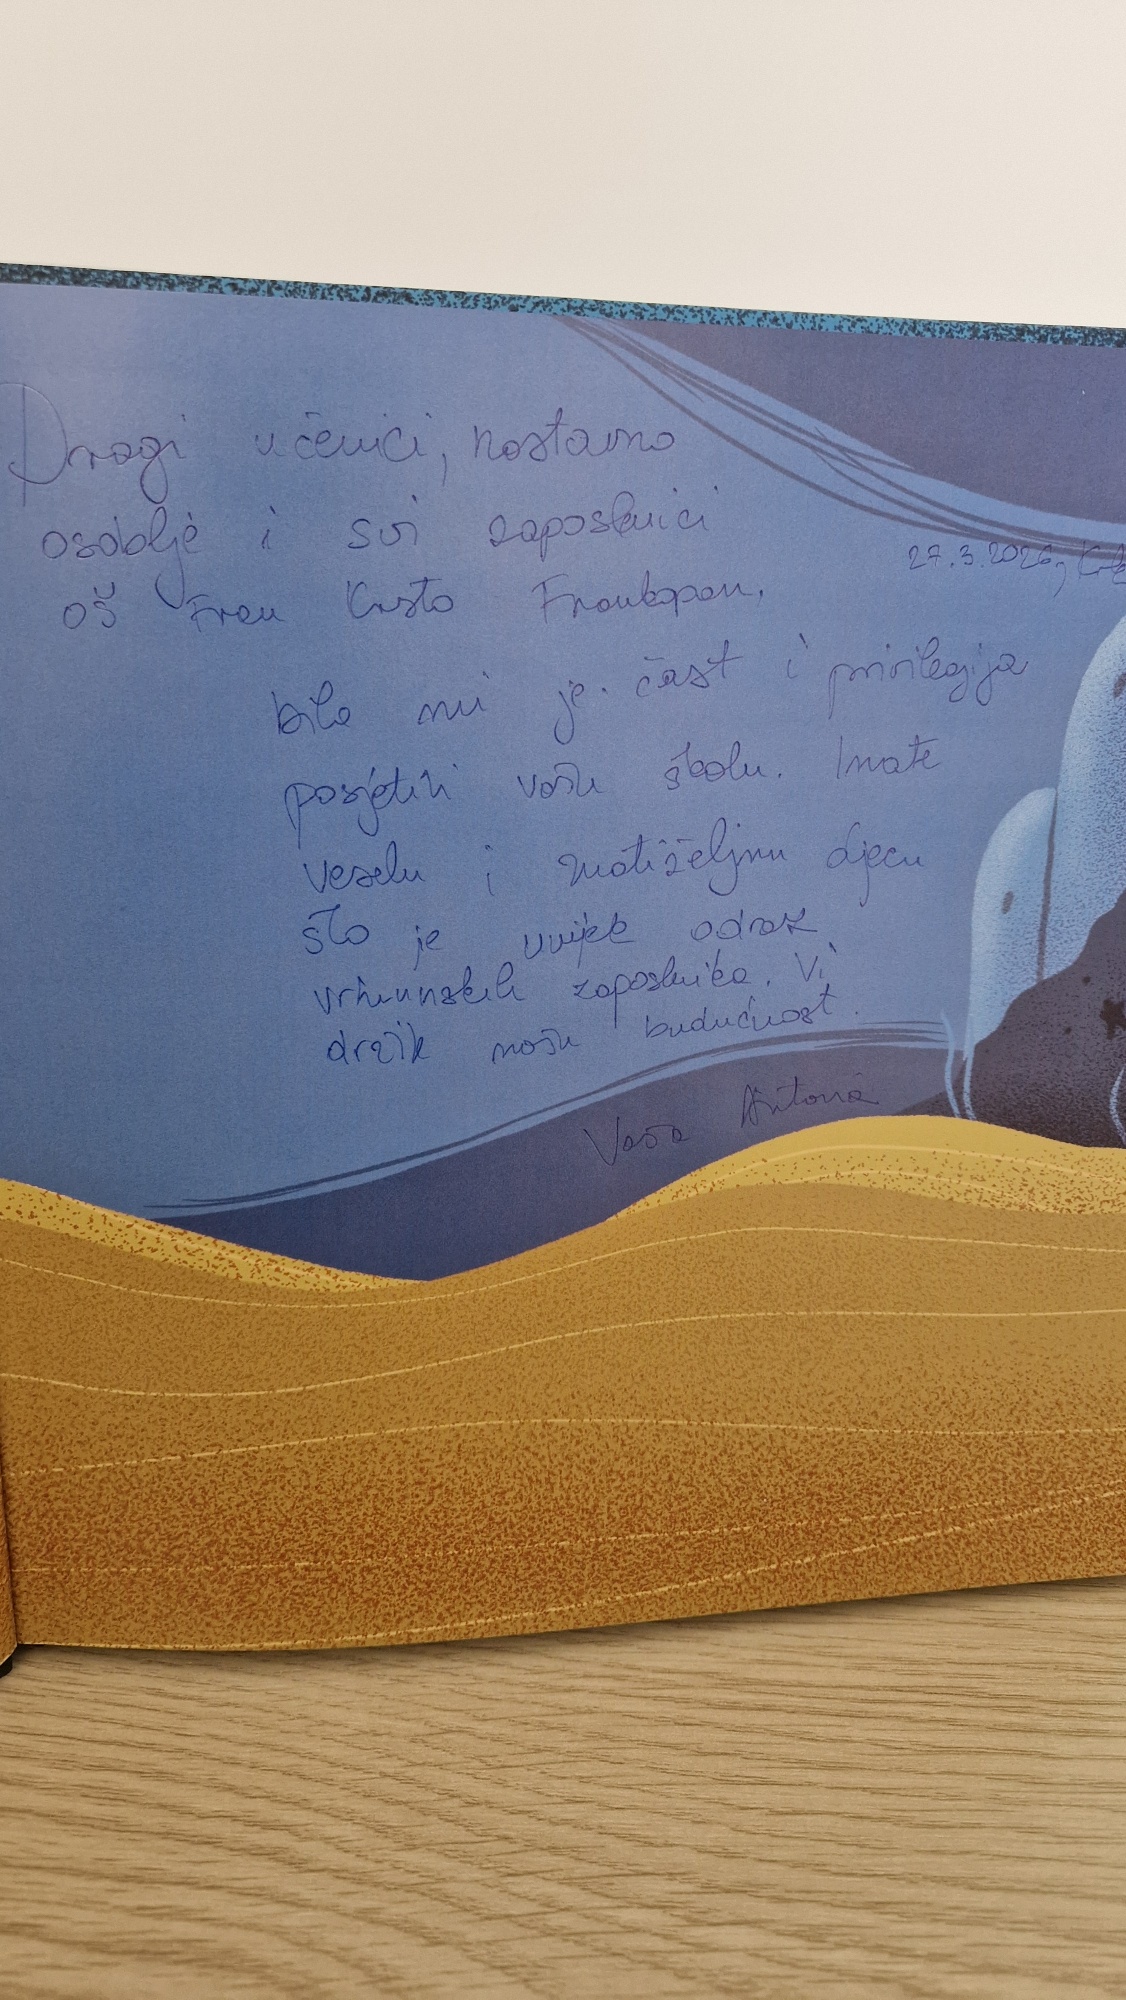 Dragi učenici, nastavno
osoblje i svi zaposlenici
OŠ Fran Krsto Frankopan,
27.3.2026, Krk
bila mi je čast i privilegija
posjetiti vašu školu. Imate
veselu i znatiželjnu djecu
što je uvijek odraz
vrhunskih zaposlenika. Vi
držite našu budućnost.
Vaša Antonia